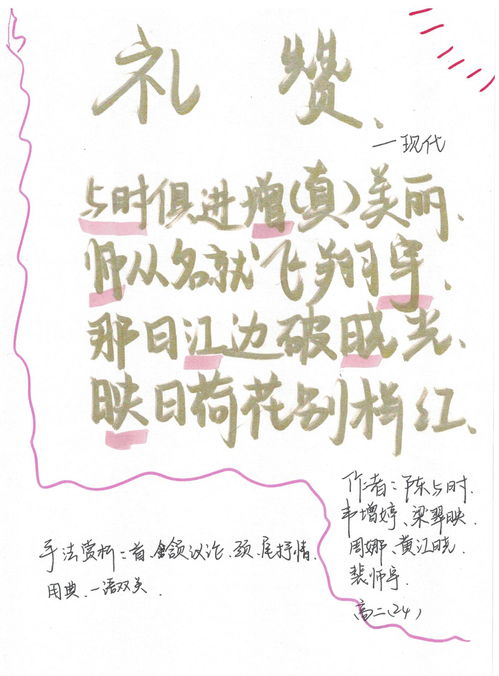 礼赞、
—现代
与时俱进增(真)美丽、
师从名就飞翔宇、
那日江边破晓光、
映日荷花别样红、
作者:陈与时、
韦增婷、梁翠映、
周娜、黄江晓、
裴师宇、
高二(24)
手法赏析:首、颔议论、颈、尾抒情、
用典、一语双关